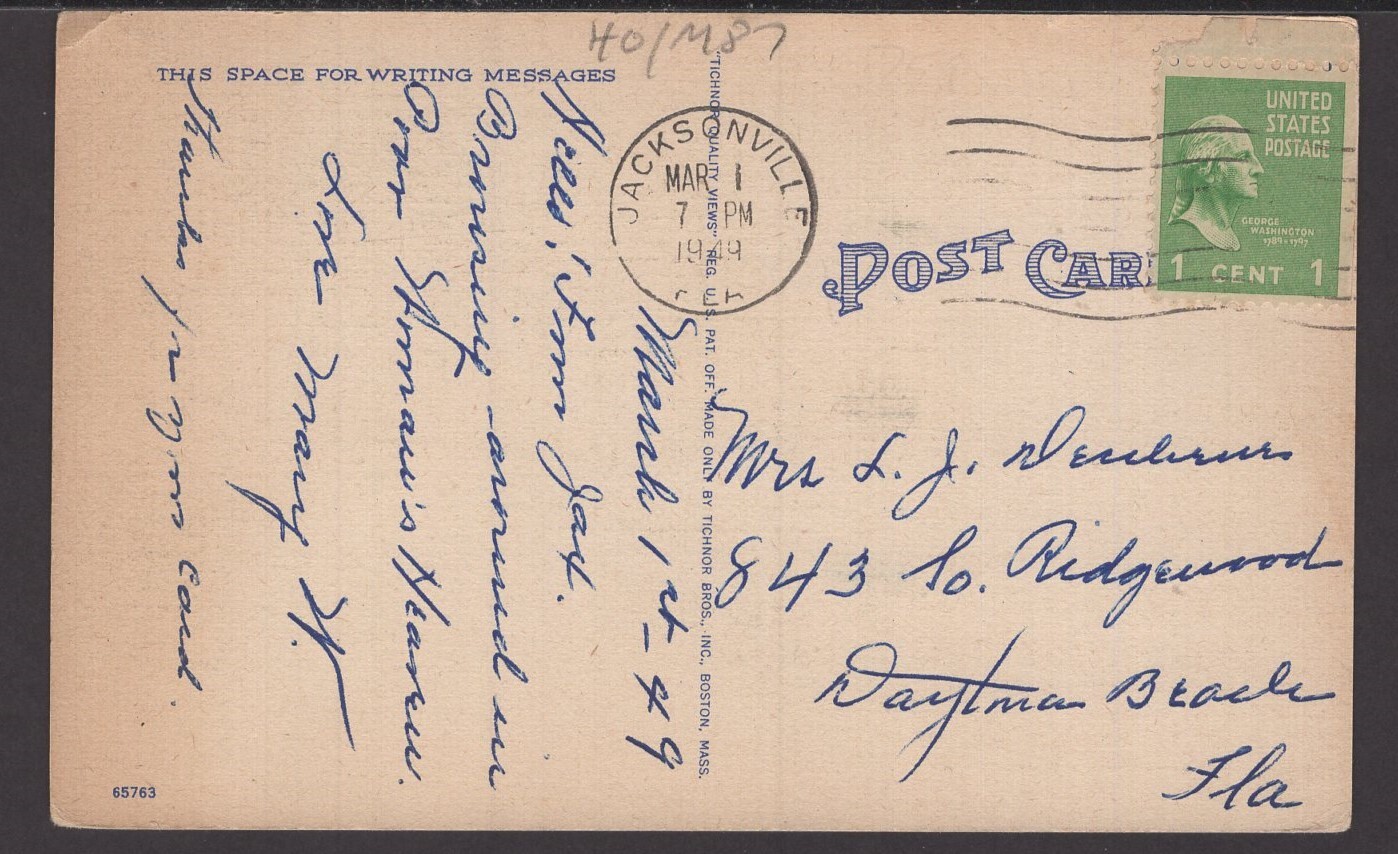 40/M87
THIS SPACE FOR WRITING MESSAGES
March 1st - 49
Hello, from Jax.
Browsing around in
Poor Woman's Heaven.
Love Mary W.
Thanks for your card.
65763
"TICHNOR QUALITY VIEWS" REG. U. S. PAT. OFF. MADE ONLY BY TICHNOR BROS., INC., BOSTON, MASS.
JACKSONVILLE
MAR 1
7 PM
1949
POST CAR
UNITED
STATES
POSTAGE
GEORGE
WASHINGTON
1789-1797
1 CENT 1
Mrs L. J.
843 So. Ridgewood
Daytona Beach
Fla